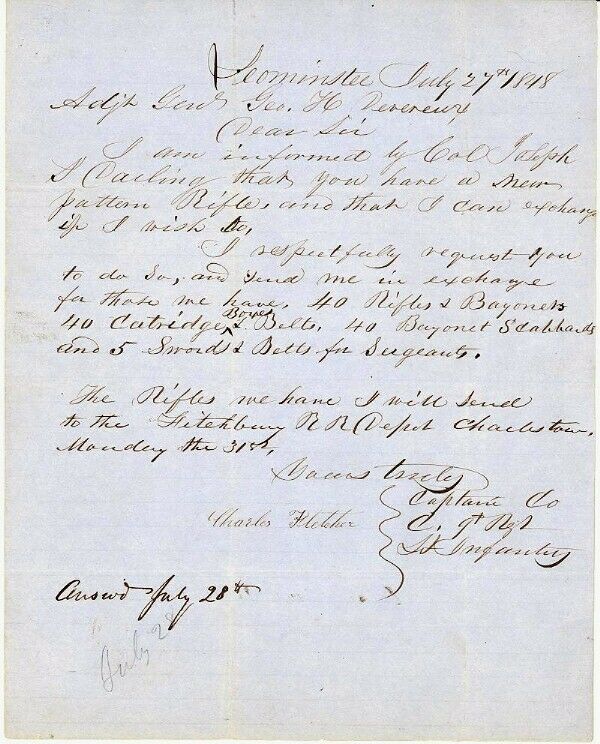 Leominster July 27th 1848
Adjt Genl Geo. H Devereux
Dear Sir
I am informed by Col Joseph
S Darling that you have a new
pattern Rifle, and that I can exchange
if I wish to,
I respectfully request you
to do so, and send me in exchange
for those we have, 40 Rifles & Bayonets
40 Catridge Boxes & Belts, 40 Bayonet Scabbards
and 5 Swords & Belts for Sergeants.
The Rifles we have I will send
to the Fitchburg R R Depot Charlestown.
Monday the 31st,
Yours truly
Charles Fletcher
Captain Co
C. 9t Rgt
Lt Infantry
Answd July 28th
July 28